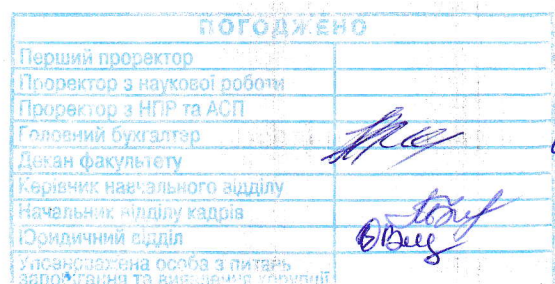 ПОГОДЖЕНО
Перший проректор
Проректор з наукової роботи
Проректор з НПР та АСП
Головний бухгалтер
Декан факультету
Керівник навчального відділу
Начальник відділу кадрів
Юридичний відділ
Уповноважена особа з питань
запобігання та виявлення корупції